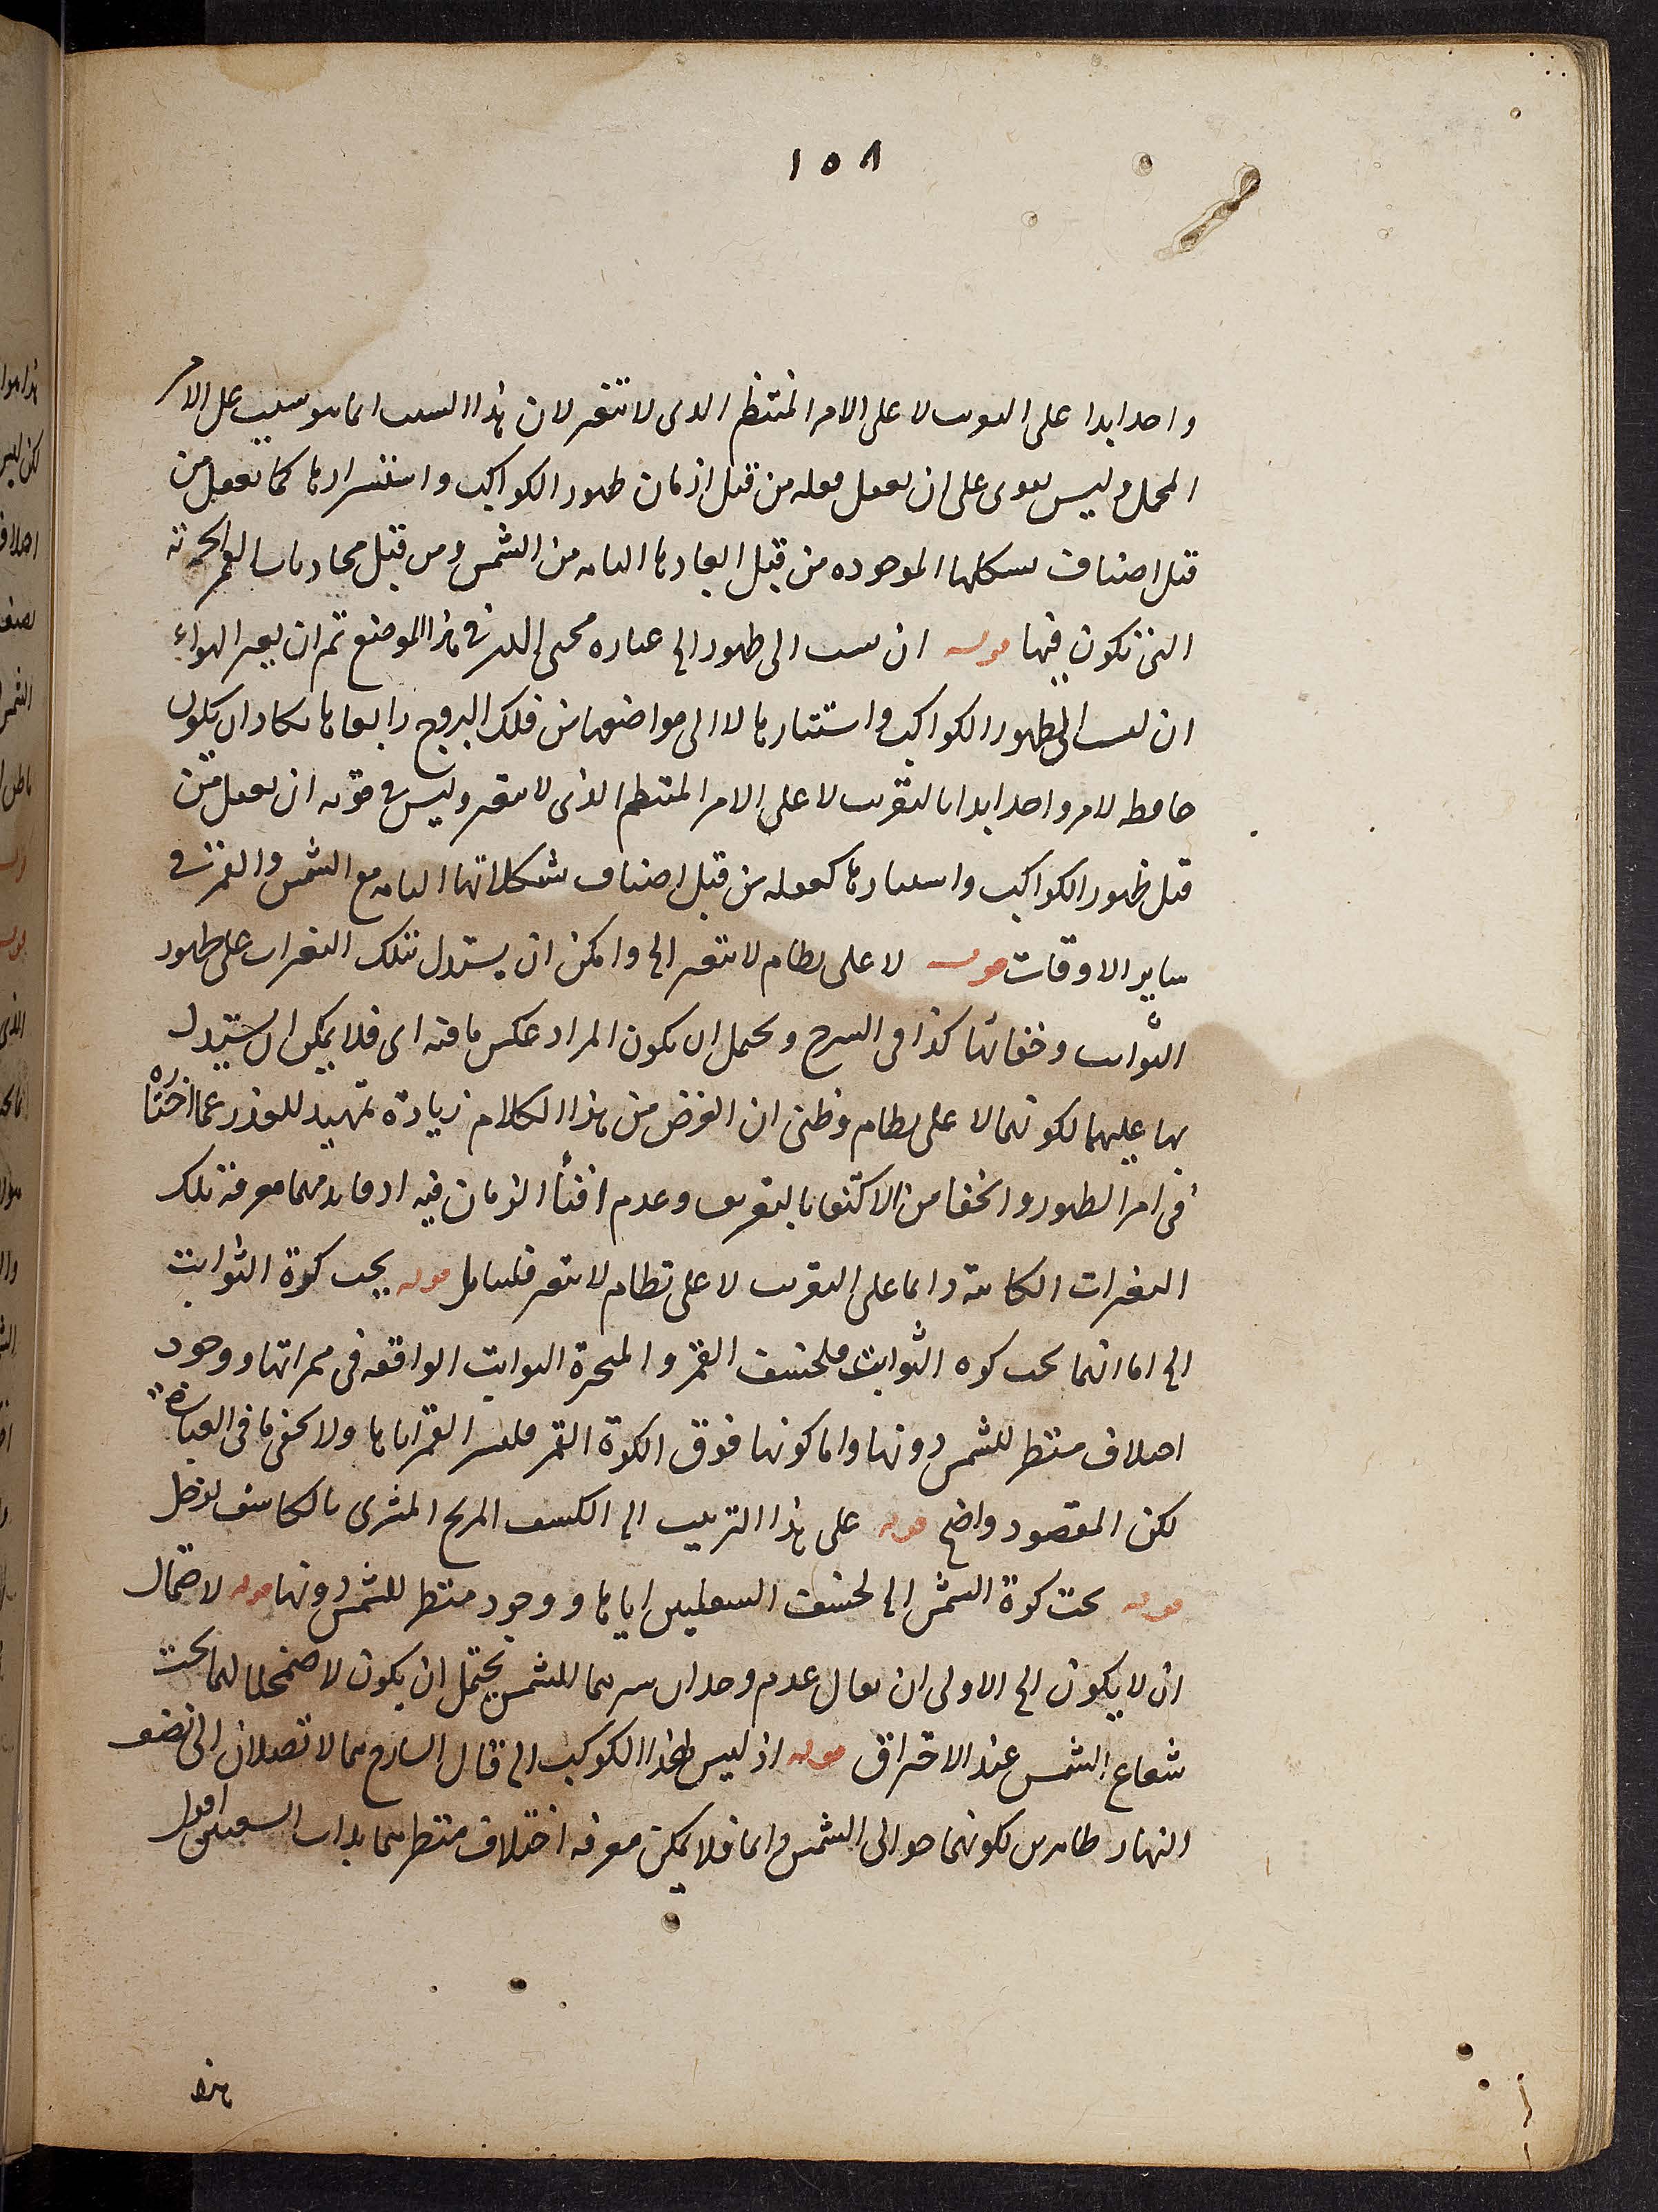 ١٥٨
واحد ابدا على التقريب لا على الامر المنتظم الذى لا يتغير لان هذا السبب انما هو سبب على الامر
المجمل وليس يقوى على ان يفعل فعله من قبل ازمان ظهور الكواكب واستسرارها كما يفعل من
قبل اصناف تشكلها الموجوده من قبل ابعادها التامه من الشمس ومن قبل محاذيات القمر
التى تكون فيها قوله ان نسب الى ظهور الخ عباره محيى الدين فى هذا الموضع ثم ان تغير الهواء
ان نسب الى ظهور الكواكب واستتارها لا الى مواضعها من فلك البروج وابعادها يكاد ان يكون
حافظه لامر واحد ابدا بالتقريب لا على الامر المنتظم الذى لا يتغير وليس فى قوته ان يفعل من
قبل ظهور الكواكب واستتارها كفعله من قبل اصناف تشكلاتها التامه مع الشمس والقمر فى
ساير الاوقات قوله لا على نظام لا يتغير الخ وامكن ان يستدل بتلك التغيرات على ظهور
الثوابت وخفائها كذا فى الشرح ويحتمل ان يكون المراد عكس ما فيه اى فلا يمكن ان يستدل
بها عليهما لكونهما لا على نظام وظنى ان الغرض من هذا الكلام زيادة تمهيد للعذر عما اختاره
فى امر الظهور والخفا من الاكتفا بالتقريب وعدم افنأ الزمان فيه اذ فايدتهما معرفة تلك
التغيرات الكاينة دايما على التقريب لا على نظام لا يتغير فليتامل قوله تحت كرة الثوابت
الخ اما انها تحت كره الثوابت فلخسف القمر والمتحيرة الثوابت الواقعه فى ممراتها ووجود
اختلاف منظر للشمس دونها واما كونها فوق الكرة القمر فلستر القمر اياها ولا يخفى ما فى العبارة
لكن المقصود واضح قوله على هذا الترتيب الخ لكسف المريخ المشترى بالكاسف لزحل
قوله تحت كرة الشمس الخ لخسف السفليين اياها ووجود منظر للشمس دونها قوله لاحتمال
ان لا يكون الخ الاولى ان يقال عدم وجدان سترهما للشمس يحتمل ان يكون لاضمحلالهما تحت
شعاع الشمس عند الاحتراق قوله اذ ليس لهذا الكوكب الخ قال الشارح هما لا تصلان الى نصف
النهار ظاهرين لكونهما حوالى الشمس دايما فلا يمكن معرفه اختلاف منظرهما بذات الشعبتين اقول
هذه